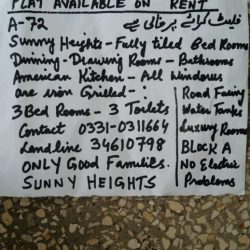 FLAT AVAILABLE ON RENT
A-72 فلیٹ کرائے پر خالی ہے
Sunny Heights - Fully tiled Bed Room
Dinning - Drawing Rooms - Bathrooms
American Kitchen - All Windows
are iron Grilled -
3 Bed Rooms - 3 Toilets
Contact 0331-0311664
Landline 34610798
ONLY Good Families.
SUNNY HEIGHTS
Road Facing
Water Tanks
Luxury Room
BLOCK A
NO Electric
Problems